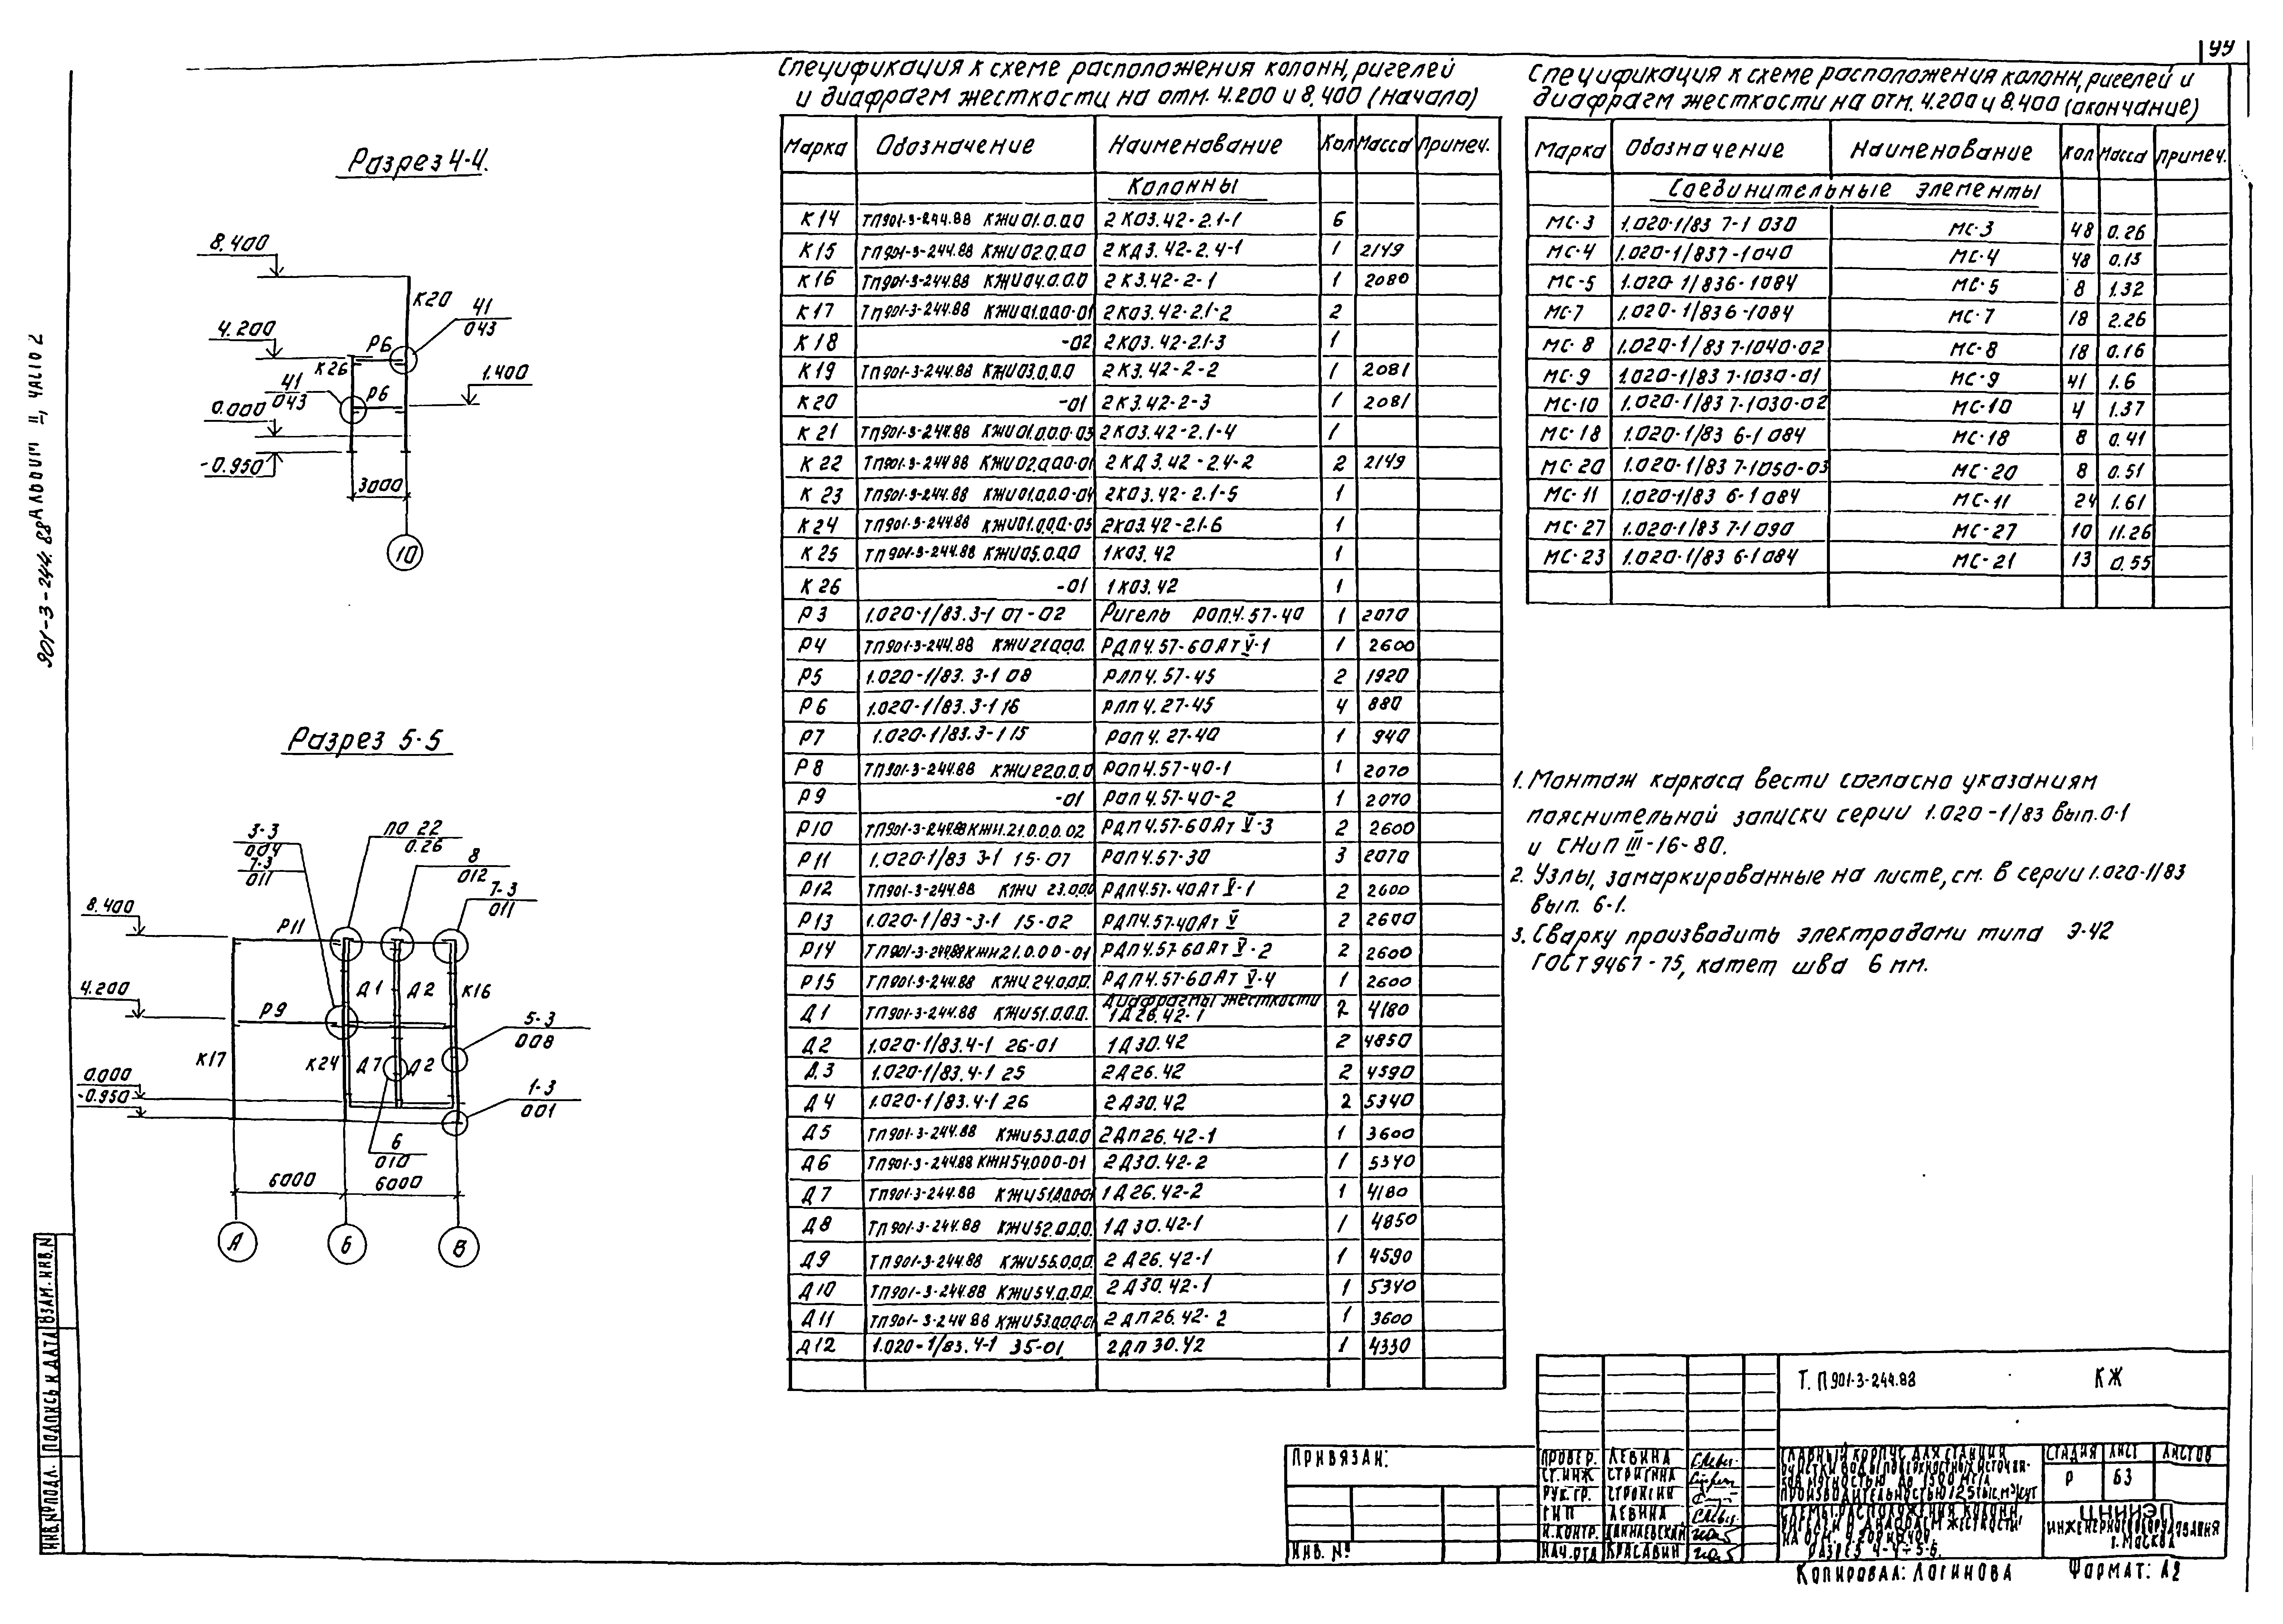 44
901-3-244.88 АЛЬБОМ II, ЧАСТЬ 2
Разрез 4-4.
8.400
К20
41
043
4.200
Р6
К26
41
043
Р6
1.400
0.000
-0.950
3000
10
Разрез 5-5
3-3
004
7-3
011
по 22
0.26
8
012
7-3
011
8.400
Р11
Д1
Д2
К16
4.200
Р9
5-3
008
К17
К24
Д7
Д2
0.000
-0.950
1-3
001
6
010
6000
6000
А
Б
В
Спецификация к схеме расположения колонн, ригелей
и диафрагм жесткости на отм. 4.200 и 8.400 (начало)
Марка Обозначение Наименование Кол Масса Примеч.
Колонны
К14 ТП901-3-244.88 КЖИ01.0.0.0 2КО3.42-2.1-1 6
К15 ТП901-3-244.88 КЖИ02.0.0.0 2КД3.42-2.4-1 1 2149
К16 ТП901-3-244.88 КЖИ04.0.0.0 2К3.42-2-1 1 2080
К17 ТП901-3-244.88 КЖИ01.0.0.0-01 2КО3.42-2.1-2 2
К18 -02 2КО3.42-2.1-3 1
К19 ТП901-3-244.88 КЖИ03.0.0.0 2К3.42-2-2 1 2081
К20 -01 2К3.42-2-3 1 2081
К21 ТП901-3-244.88 КЖИ01.0.0.0-03 2КО3.42-2.1-4 1
К22 ТП901-3-244.88 КЖИ02.0.0.0-01 2КД3.42-2.4-2 2 2149
К23 ТП901-3-244.88 КЖИ01.0.0.0-04 2КО3.42-2.1-5 1
К24 ТП901-3-244.88 КЖИ01.0.0.0-05 2КО3.42-2.1-6 1
К25 ТП901-3-244.88 КЖИ05.0.0.0 1КО3.42 1
К26 -01 1КО3.42 1
Р3 1.020-1/83.3-1 07-02 Ригель РОП4.57-40 1 2070
Р4 ТП901-3-244.88 КЖИ21.0.0.0. РДП4.57-60Ат V-1 1 2600
Р5 1.020-1/83.3-1 08 РЛП4.57-45 2 1920
Р6 1.020-1/83.3-1 16 РЛП4.27-45 4 880
Р7 1.020-1/83.3-1 15 РОП4.27-40 1 940
Р8 ТП901-3-244.88 КЖИ22.0.0.0 РОП4.57-40-1 1 2070
Р9 -01 РОП4.57-40-2 1 2070
Р10 ТП901-3-244.88 КЖИ.21.0.0.0.02 РДП4.57-60Ат V-3 2 2600
Р11 1.020-1/83 3-1 15-07 РОП4.57-30 3 2070
Р12 ТП901-3-244.88 КЖИ 23.0.0.0 РДП4.57-40Ат V-1 2 2600
Р13 1.020-1/83-3-1 15-02 РДП4.57-40Ат V 2 2600
Р14 ТП901-3-244.88 КЖИ21.0.0.0-01 РДП4.57-60Ат V-2 2 2600
Р15 ТП901-3-244.88 КЖИ24.0.0.0. РДП4.57-60Ат V-4 1 2600
Диафрагмы жесткости
Д1 ТП901-3-244.88 КЖИ51.0.0.0. 1Д26.42-1 2 4180
Д2 1.020-1/83.4-1 26-01 1Д30.42 2 4850
Д3 1.020-1/83.4-1 25 2Д26.42 2 4590
Д4 1.020-1/83.4-1 26 2Д30.42 2 5340
Д5 ТП901-3-244.88 КЖИ53.0.0.0 2ДП26.42-1 1 3600
Д6 ТП901-3-244.88 КЖИ54.0.0.0-01 2Д30.42-2 1 5340
Д7 ТП901-3-244.88 КЖИ51.0.0.0-01 1Д26.42-2 1 4180
Д8 ТП901-3-244.88 КЖИ52.0.0.0. 1Д30.42-1 1 4850
Д9 ТП901-3-244.88 КЖИ55.0.0.0. 2Д26.42-1 1 4590
Д10 ТП901-3-244.88 КЖИ54.0.0.0. 2Д30.42-1 1 5340
Д11 ТП901-3-244.88 КЖИ53.0.0.0-01 2ДП26.42-2 1 3600
Д12 1.020-1/83.4-1 35-01 2ДП30.42 1 4330
Спецификация к схеме расположения колонн, ригелей и
диафрагм жесткости на отм. 4.200 и 8.400 (окончание)
Марка Обозначение Наименование Кол Масса Примеч.
Соединительные элементы
МС-3 1.020-1/83 7-1 030 МС-3 48 0.26
МС-4 1.020-1/83 7-1 040 МС-4 48 0.15
МС-5 1.020-1/83 6-1 084 МС-5 8 1.32
МС-7 1.020-1/83 6-1 084 МС-7 18 2.26
МС-8 1.020-1/83 7-1040-02 МС-8 18 0.16
МС-9 1.020-1/83 7-1030-01 МС-9 41 1.6
МС-10 1.020-1/83 7-1030-02 МС-10 4 1.37
МС-18 1.020-1/83 6-1 084 МС-18 8 0.41
МС-20 1.020-1/83 7-1050-03 МС-20 8 0.51
МС-11 1.020-1/83 6-1 084 МС-11 24 1.61
МС-27 1.020-1/83 7-1 090 МС-27 10 11.26
МС-23 1.020-1/83 6-1 084 МС-21 13 0.55
1. Монтаж каркаса вести согласно указаниям
пояснительной записки серии 1.020-1/83 вып.0-1
и СНиП III-16-80.
2. Узлы, замаркированные на листе, см. в серии 1.020-1/83
вып. 6-1.
3. Сварку производить электродами типа Э-42
ГОСТ 9467-75, катет шва 6 мм.
Т. П 901-3-244.88 КЖ
ПРИВЯЗАН:
ИНВ. №
ПРОВЕР. ЛЕВИНА
СТ.ИНЖ СТРИГИНА
РУК. ГР. СТРОНГИН
ГИП ЛЕВИНА
Н.КОНТР. ДАНИЛЕВСКИЙ
НАЧ.ОТД КРАСАВИН
ГЛАВНЫЙ КОРПУС ДЛЯ СТАНЦИИ
ОЧИСТКИ ВОДЫ ПОВЕРХНОСТНЫХ ИСТОЧНИ-
КОВ МУТНОСТЬЮ ДО 1500 МГ/Л
ПРОИЗВОДИТЕЛЬНОСТЬЮ 12.5 ТЫС. М³/СУТ
СХЕМЫ РАСПОЛОЖЕНИЯ КОЛОНН
РИГЕЛЕЙ И ДИАФРАГМ ЖЕСТКОСТИ
НА ОТМ. 4.200 И 8.400.
РАЗРЕЗ 4-4÷5-5.
СТАДИЯ ЛИСТ ЛИСТОВ
Р 63
ЦНИИЭП
ИНЖЕНЕРНОГО ОБОРУДОВАНИЯ
Г. МОСКВА
КОПИРОВАЛ: ЛОГИНОВА ФОРМАТ: А2
ИНВ.№ПОДЛ. ПОДПИСЬ И ДАТА ВЗАМ.ИНВ.N